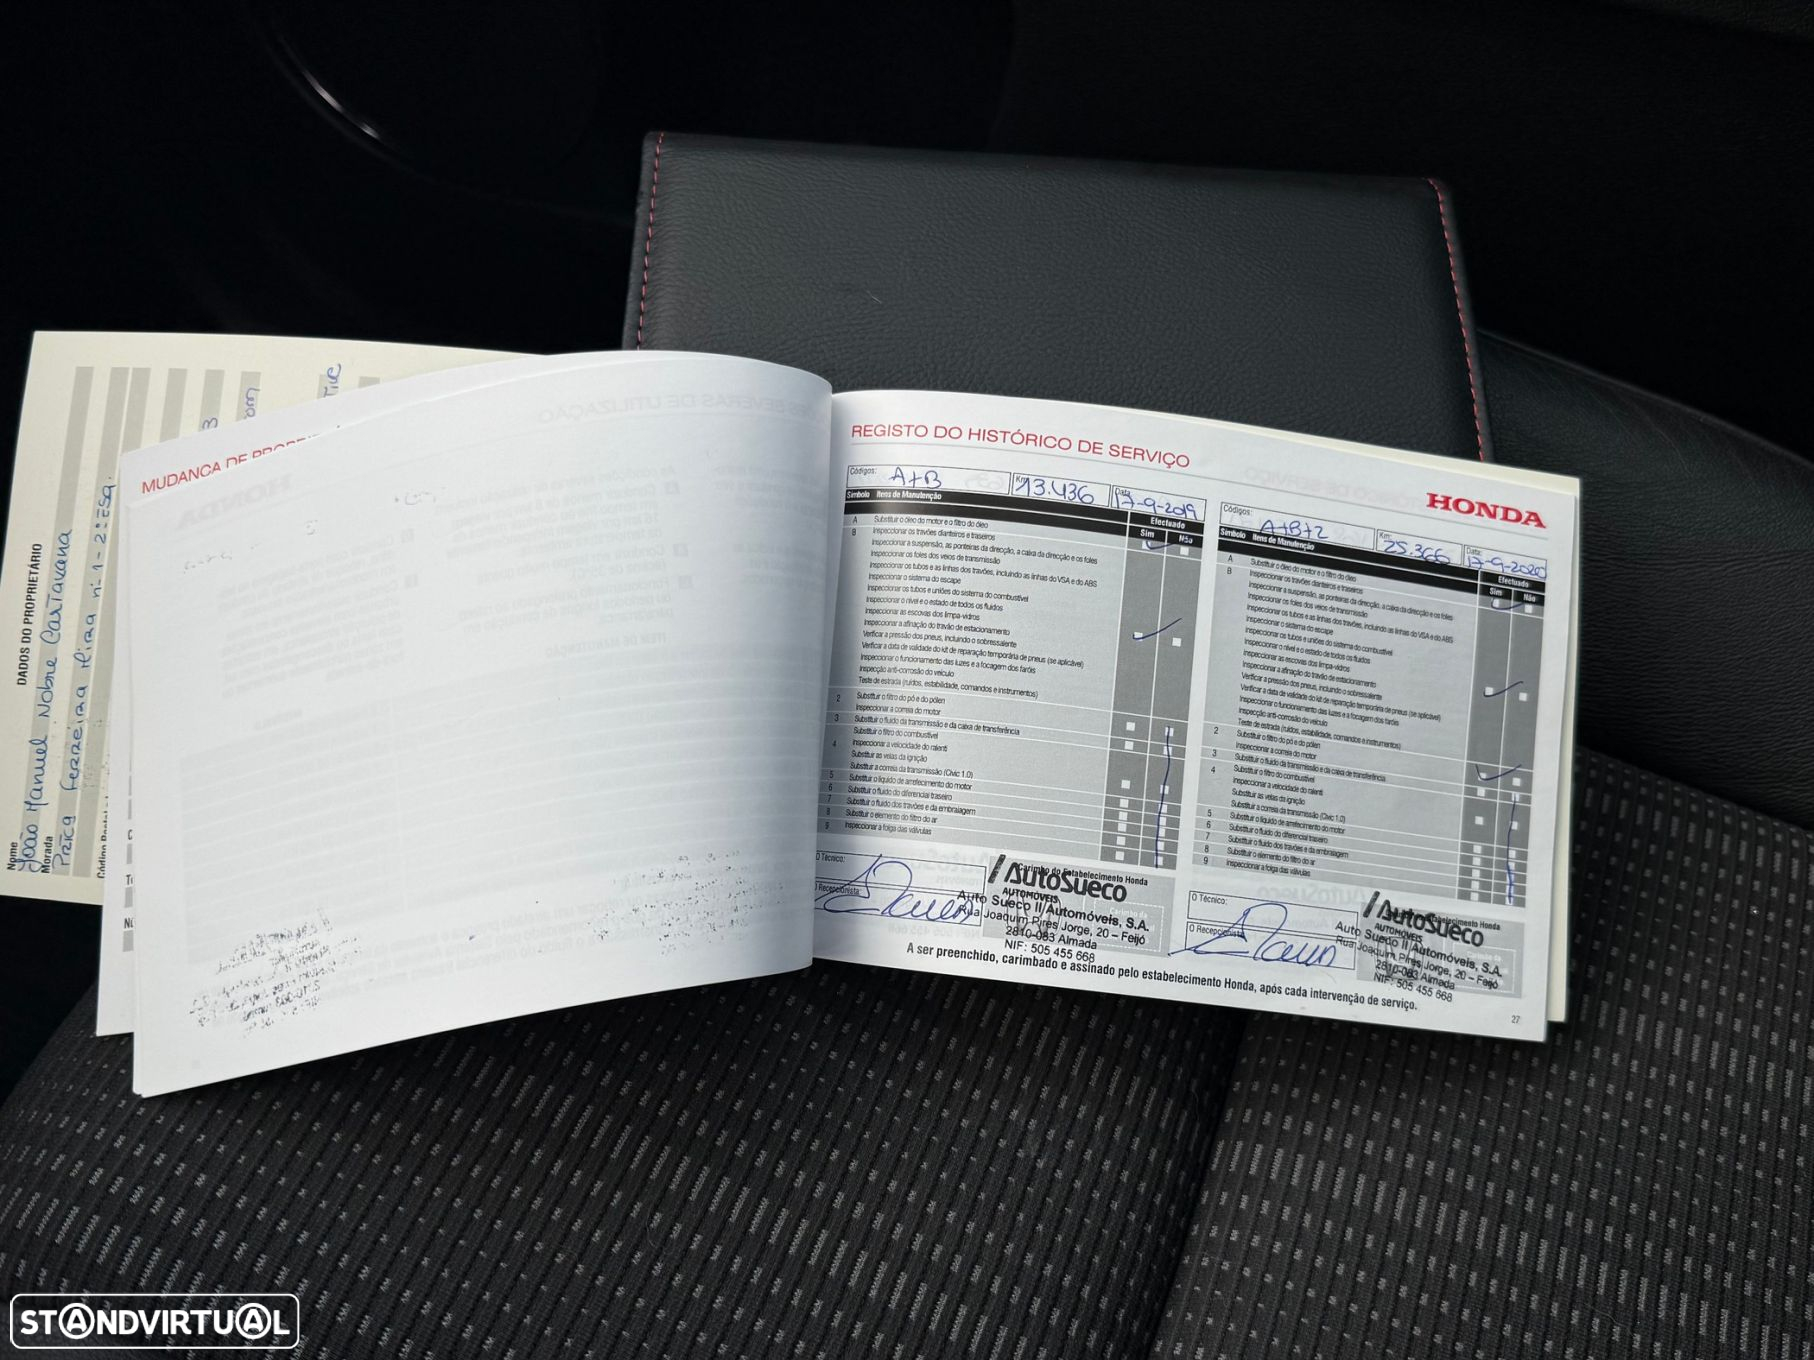 DADOS DO PROPRIETÁRIO
Nome
João Manuel Nobre Cartavana
Morada
Praça Ferreira Mira nº 1 - 2º Esq.
Código Postal
MUDANÇA DE
REGISTO DO HISTÓRICO DE SERVIÇO
HONDA
Códigos: A+B
Km: 13.436
Data: 17-9-2019
Símbolo Itens de Manutenção
Efectuado
Sim Não
A Substituir o óleo do motor e o filtro do óleo
B Inspeccionar os travões dianteiros e traseiros
Inspeccionar a suspensão, as ponteiras da direcção, a caixa da direcção e os foles
Inspeccionar os foles dos veios de transmissão
Inspeccionar os tubos e as linhas dos travões, incluindo as linhas do VSA e do ABS
Inspeccionar o sistema do escape
Inspeccionar os tubos e uniões do sistema do combustível
Inspeccionar o nível e o estado de todos os fluidos
Inspeccionar as escovas dos limpa-vidros
Inspeccionar a afinação do travão de estacionamento
Verificar a pressão dos pneus, incluindo o sobresselente
Verificar a data de validade do kit de reparação temporária de pneus (se aplicável)
Inspeccionar o funcionamento das luzes e a focagem dos faróis
Inspecção anti-corrosão do veículo
Teste de estrada (ruídos, estabilidade, comandos e instrumentos)
2 Substituir o filtro do pó e do pólen
Inspeccionar a correia do motor
3 Substituir o fluido da transmissão e da caixa de transferência
Substituir o filtro do combustível
4 Inspeccionar a velocidade do ralenti
Substituir as velas da ignição
Substituir a correia da transmissão (Civic 1.0)
5 Substituir o líquido de arrefecimento do motor
6 Substituir o fluido do diferencial traseiro
7 Substituir o fluido dos travões e da embraiagem
8 Substituir o elemento do filtro do ar
9 Inspeccionar a folga das válvulas
O Técnico:
O Recepcionista:
Carimbo do Estabelecimento Honda
AutoSueco
AUTOMÓVEIS
Auto Sueco II Automóveis, S.A.
Rua Joaquim Pires Jorge, 20 – Feijó
2810-083 Almada
NIF: 505 455 668
Códigos: A+B+2
Km: 25.366
Data: 17-9-2020
Símbolo Itens de Manutenção
Efectuado
Sim Não
A Substituir o óleo do motor e o filtro do óleo
B Inspeccionar os travões dianteiros e traseiros
Inspeccionar a suspensão, as ponteiras da direcção, a caixa da direcção e os foles
Inspeccionar os foles dos veios de transmissão
Inspeccionar os tubos e as linhas dos travões, incluindo as linhas do VSA e do ABS
Inspeccionar o sistema do escape
Inspeccionar os tubos e uniões do sistema do combustível
Inspeccionar o nível e o estado de todos os fluidos
Inspeccionar as escovas dos limpa-vidros
Inspeccionar a afinação do travão de estacionamento
Verificar a pressão dos pneus, incluindo o sobresselente
Verificar a data de validade do kit de reparação temporária de pneus (se aplicável)
Inspeccionar o funcionamento das luzes e a focagem dos faróis
Inspecção anti-corrosão do veículo
Teste de estrada (ruídos, estabilidade, comandos e instrumentos)
2 Substituir o filtro do pó e do pólen
Inspeccionar a correia do motor
3 Substituir o fluido da transmissão e da caixa de transferência
4 Substituir o filtro do combustível
Inspeccionar a velocidade do ralenti
Substituir as velas da ignição
Substituir a correia da transmissão (Civic 1.0)
5 Substituir o líquido de arrefecimento do motor
6 Substituir o fluido do diferencial traseiro
7 Substituir o fluido dos travões e da embraiagem
8 Substituir o elemento do filtro do ar
9 Inspeccionar a folga das válvulas
O Técnico:
O Recepcionista:
Estabelecimento Honda
AutoSueco
AUTOMÓVEIS
Auto Sueco II Automóveis, S.A.
Rua Joaquim Pires Jorge, 20 – Feijó
2810-083 Almada
NIF: 505 455 668
A ser preenchido, carimbado e assinado pelo estabelecimento Honda, após cada intervenção de serviço.
27
STANDVIRTUAL